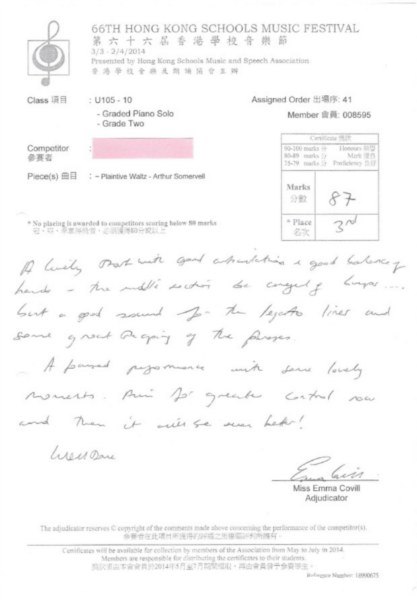 66TH HONG KONG SCHOOLS MUSIC FESTIVAL
第六十六屆香港學校音樂節
3/3 - 2/4/2014
Presented by Hong Kong Schools Music and Speech Association
香港學校音樂及朗誦協會主辦
Class 項目 : U105 - 10 Assigned Order 出場序: 41
- Graded Piano Solo Member 會員: 008595
- Grade Two
Certificate
90-100 marks 分 Honours
80-89 marks 分 Merit
75-79 marks 分 Proficiency
Competitor :
參賽者
Piece(s) 曲目 : ~ Plaintive Waltz - Arthur Somervell
Marks 87
分數
* No placing is awarded to competitors scoring below 80 marks
* Place 3rd
名次
A lovely start with good articulation & good balance of
hands - the middle section
but a good sound for the legato lines and
some great shaping of the phrases.
A performance with some lovely
moments. Aim for greater control now
and then it will be even better!
Well Done
Emma Covill
Miss Emma Covill
Adjudicator
The adjudicator reserves © copyright of the comments made above concerning the performance of the competitor(s).
Certificates will be available for collection by members of the Association from May to July in 2014.
Members are responsible for distributing the certificates to their students.